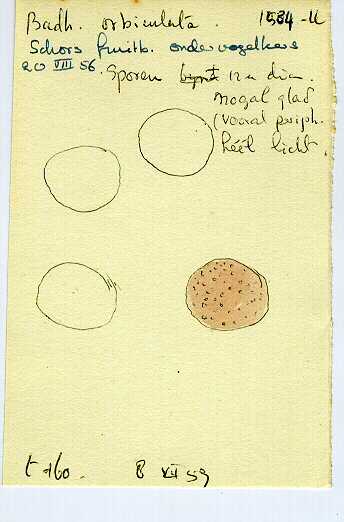 Badh. orbiculata. 1584-U
Schors fruitb. onder vogelkers
20 VIII 56. Sporen 12 u diam.
nogal glad
(vooral periph.
héél licht.
8 VII 59